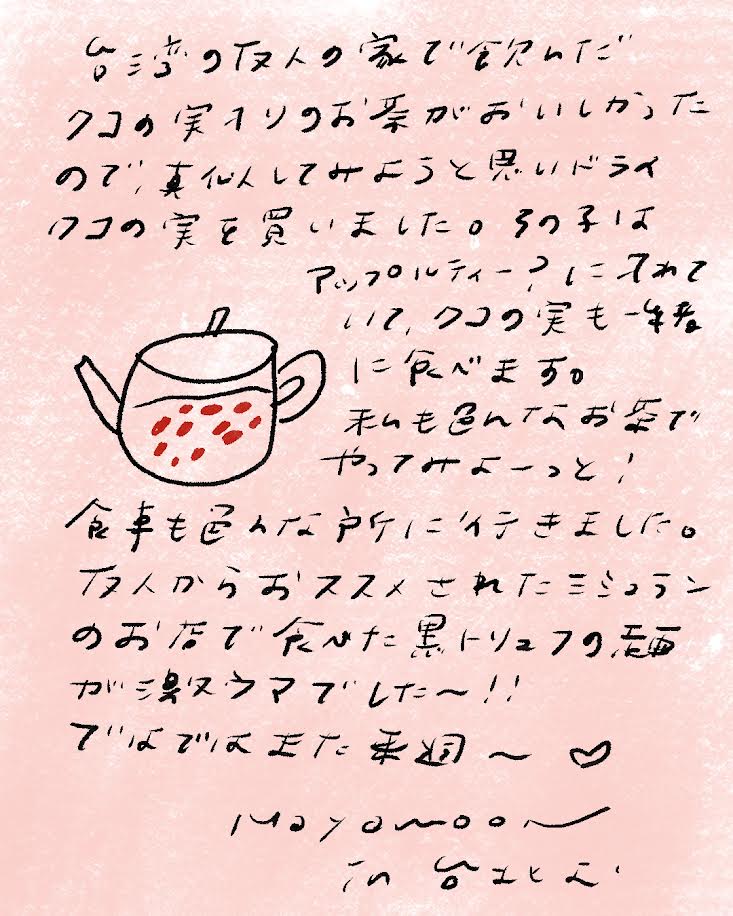 台湾の友人の家で飲んだ
クコの実入りのお茶がおいしかった
ので、真似してみようと思いドライ
クコの実を買いました。その子は
アップルティー?に入れて
いて、クコの実も一緒
に食べます。
私も色んなお茶で
やってみよーっと!
食事も色んな所に行きました。
友人からおススメされたミシュラン
のお店で食べた黒トリュフの麺
が激ウマでした〜!!
ではではまた来週〜♡
Mayamoon
in 台北